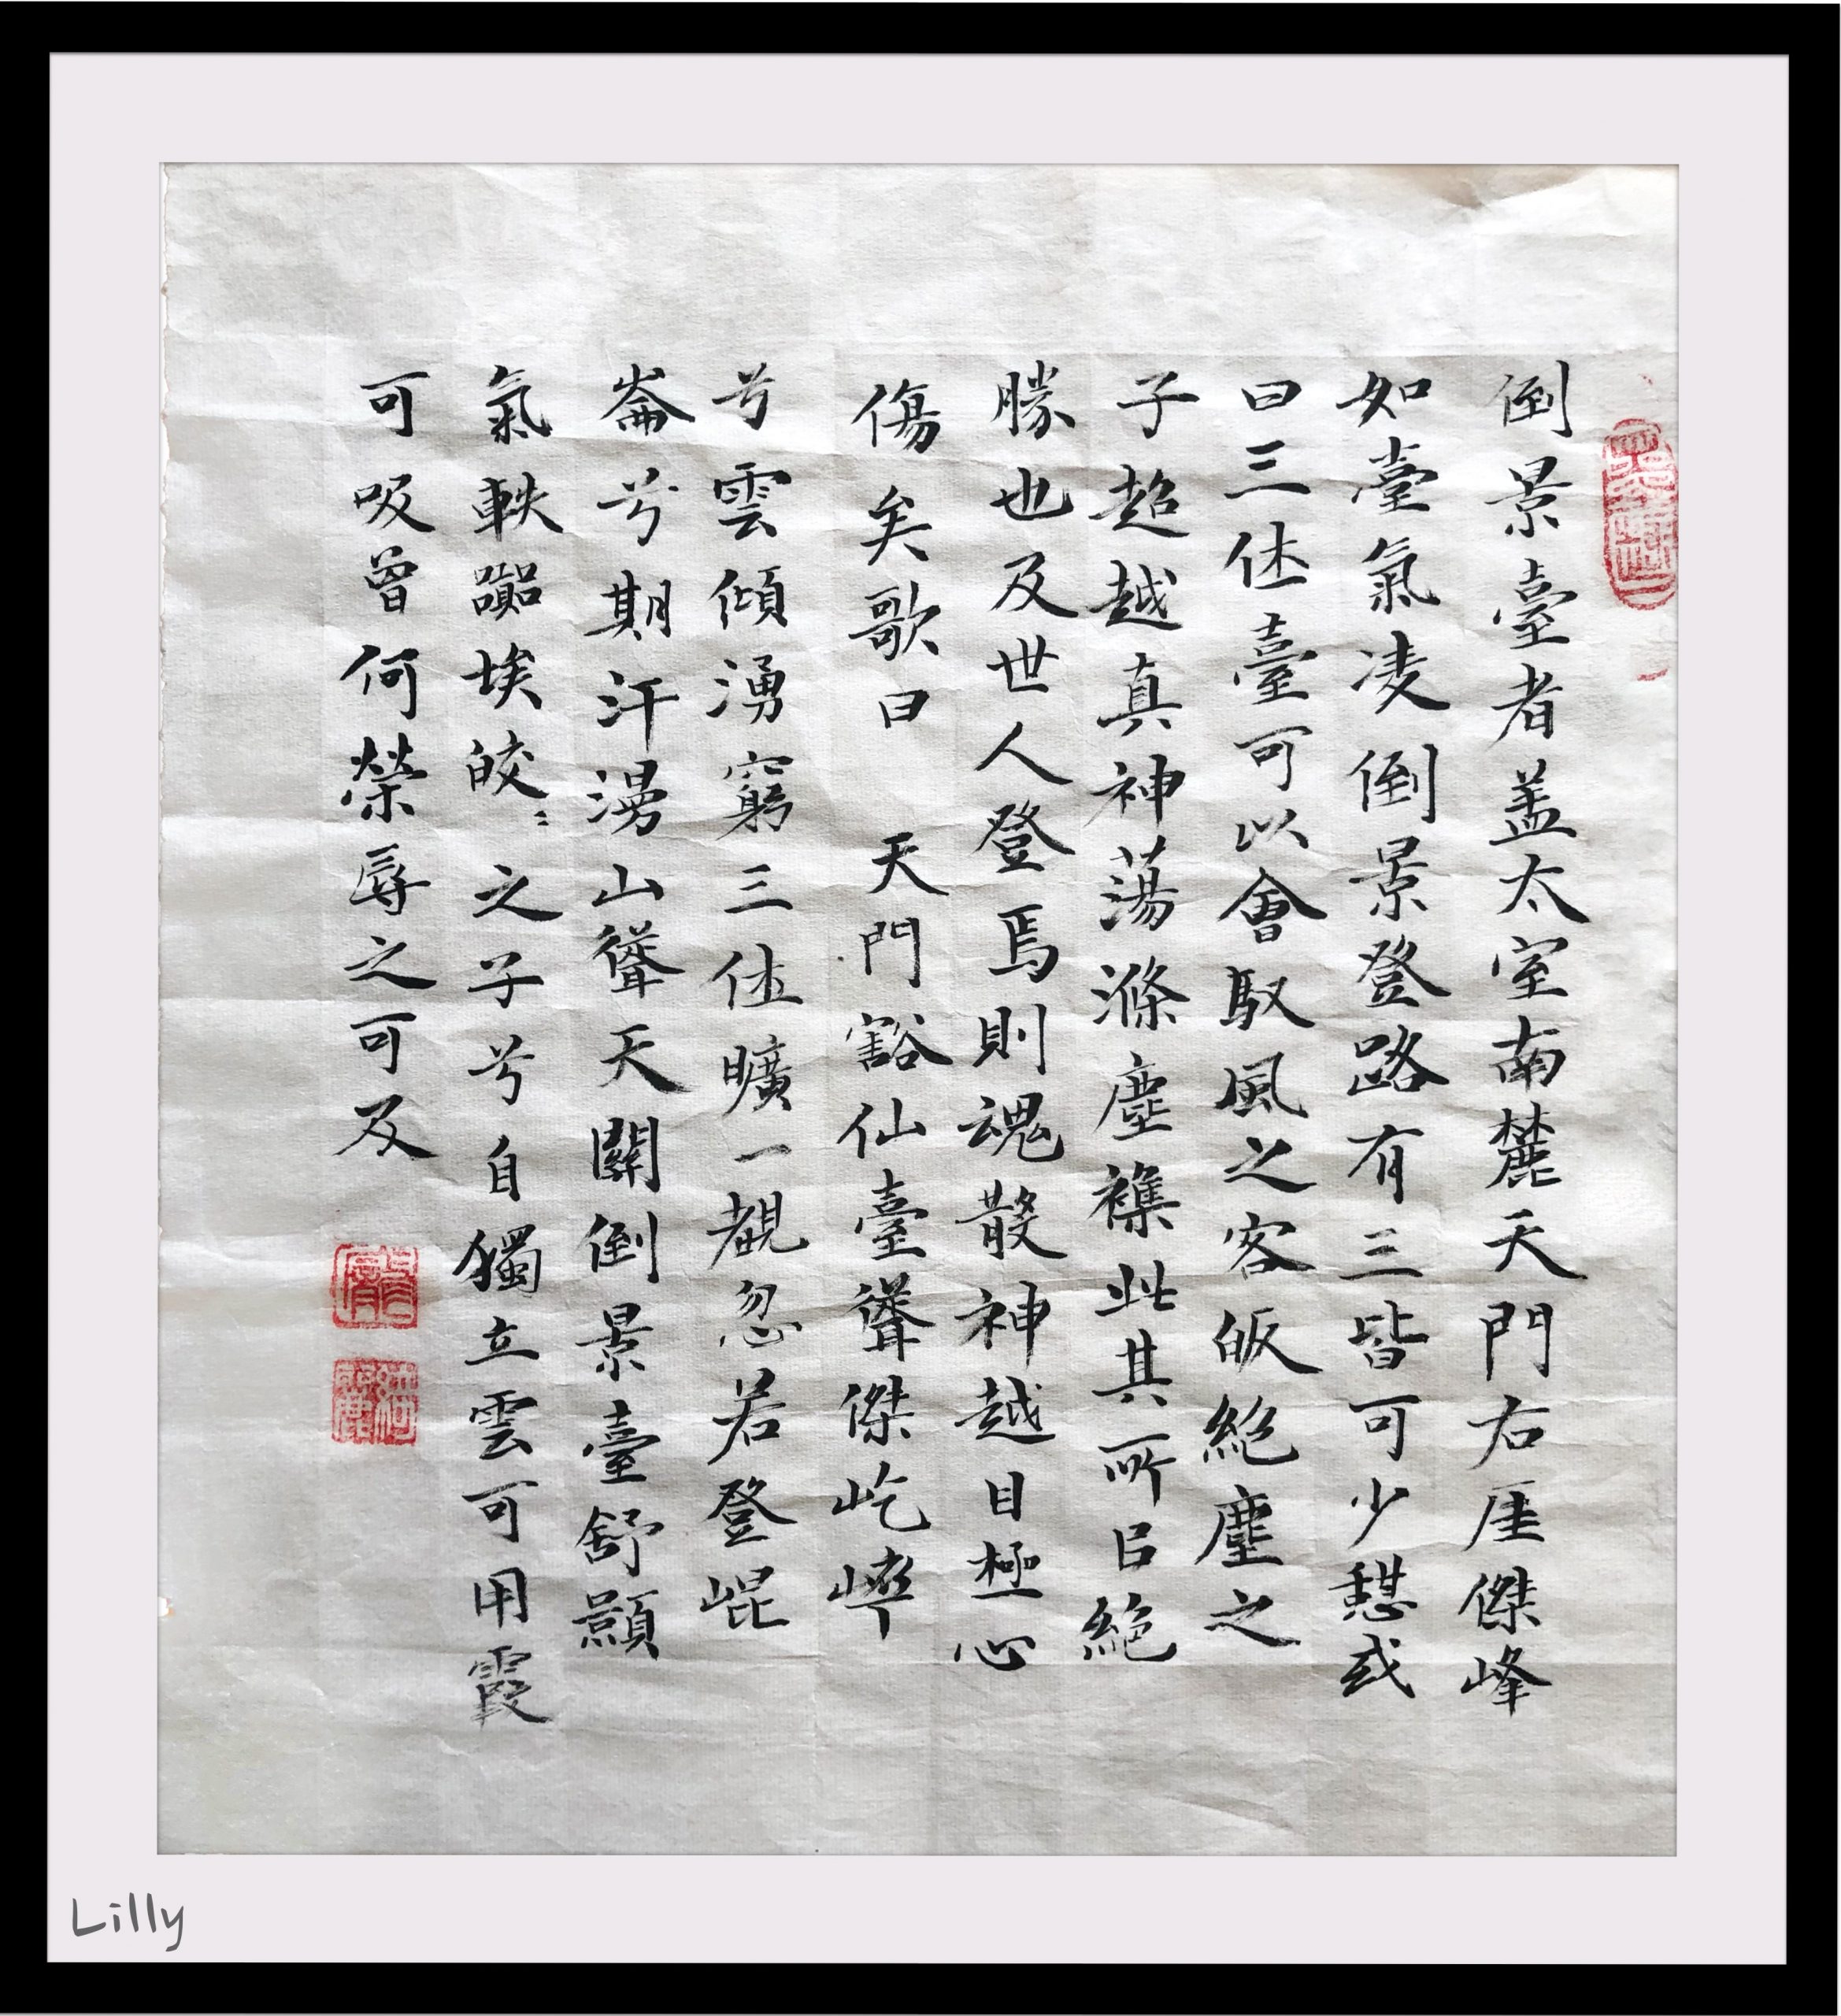 倒景臺者盖太室南麓天門右厓傑峰
如臺氣凌倒景登路有三皆可少憩或
曰三休臺可以會馭風之客皈絶塵之
子超越真神蕩滌塵襟此其所㠯絶
勝也及世人登焉則魂散神越目極心
傷矣歌曰 天門豁仙臺聳傑屹崪
兮雲傾湧窮三休曠一覩忽若登崐
崙兮期汗漫山聳天關倒景臺舒顥
氣軼囂埃皎〻之子兮自獨立雲可用霞
可吸曾何榮辱之可及
Lilly